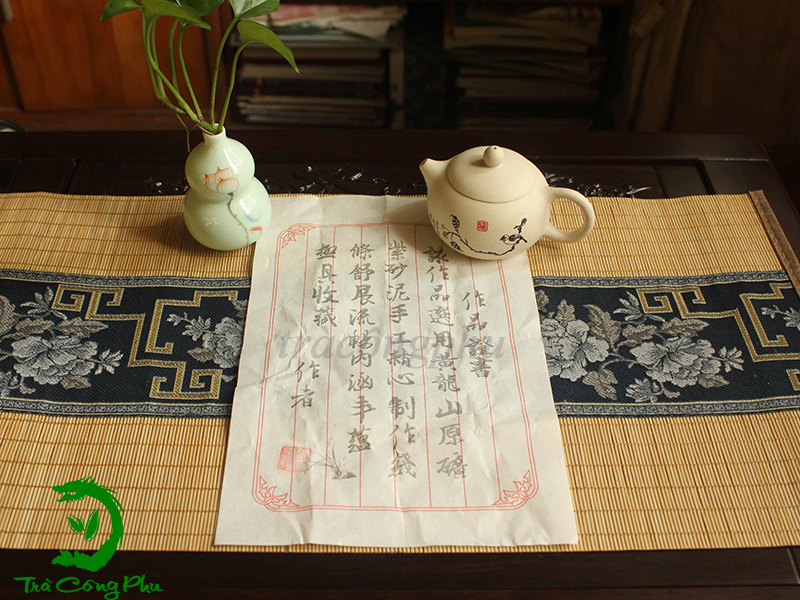 作品證書
該作品選用黄龍山原礦
紫砂泥手工精心制作線
條舒展流暢内涵丰蘊
極具收藏
作者
tracongphu
Trà Công Phu